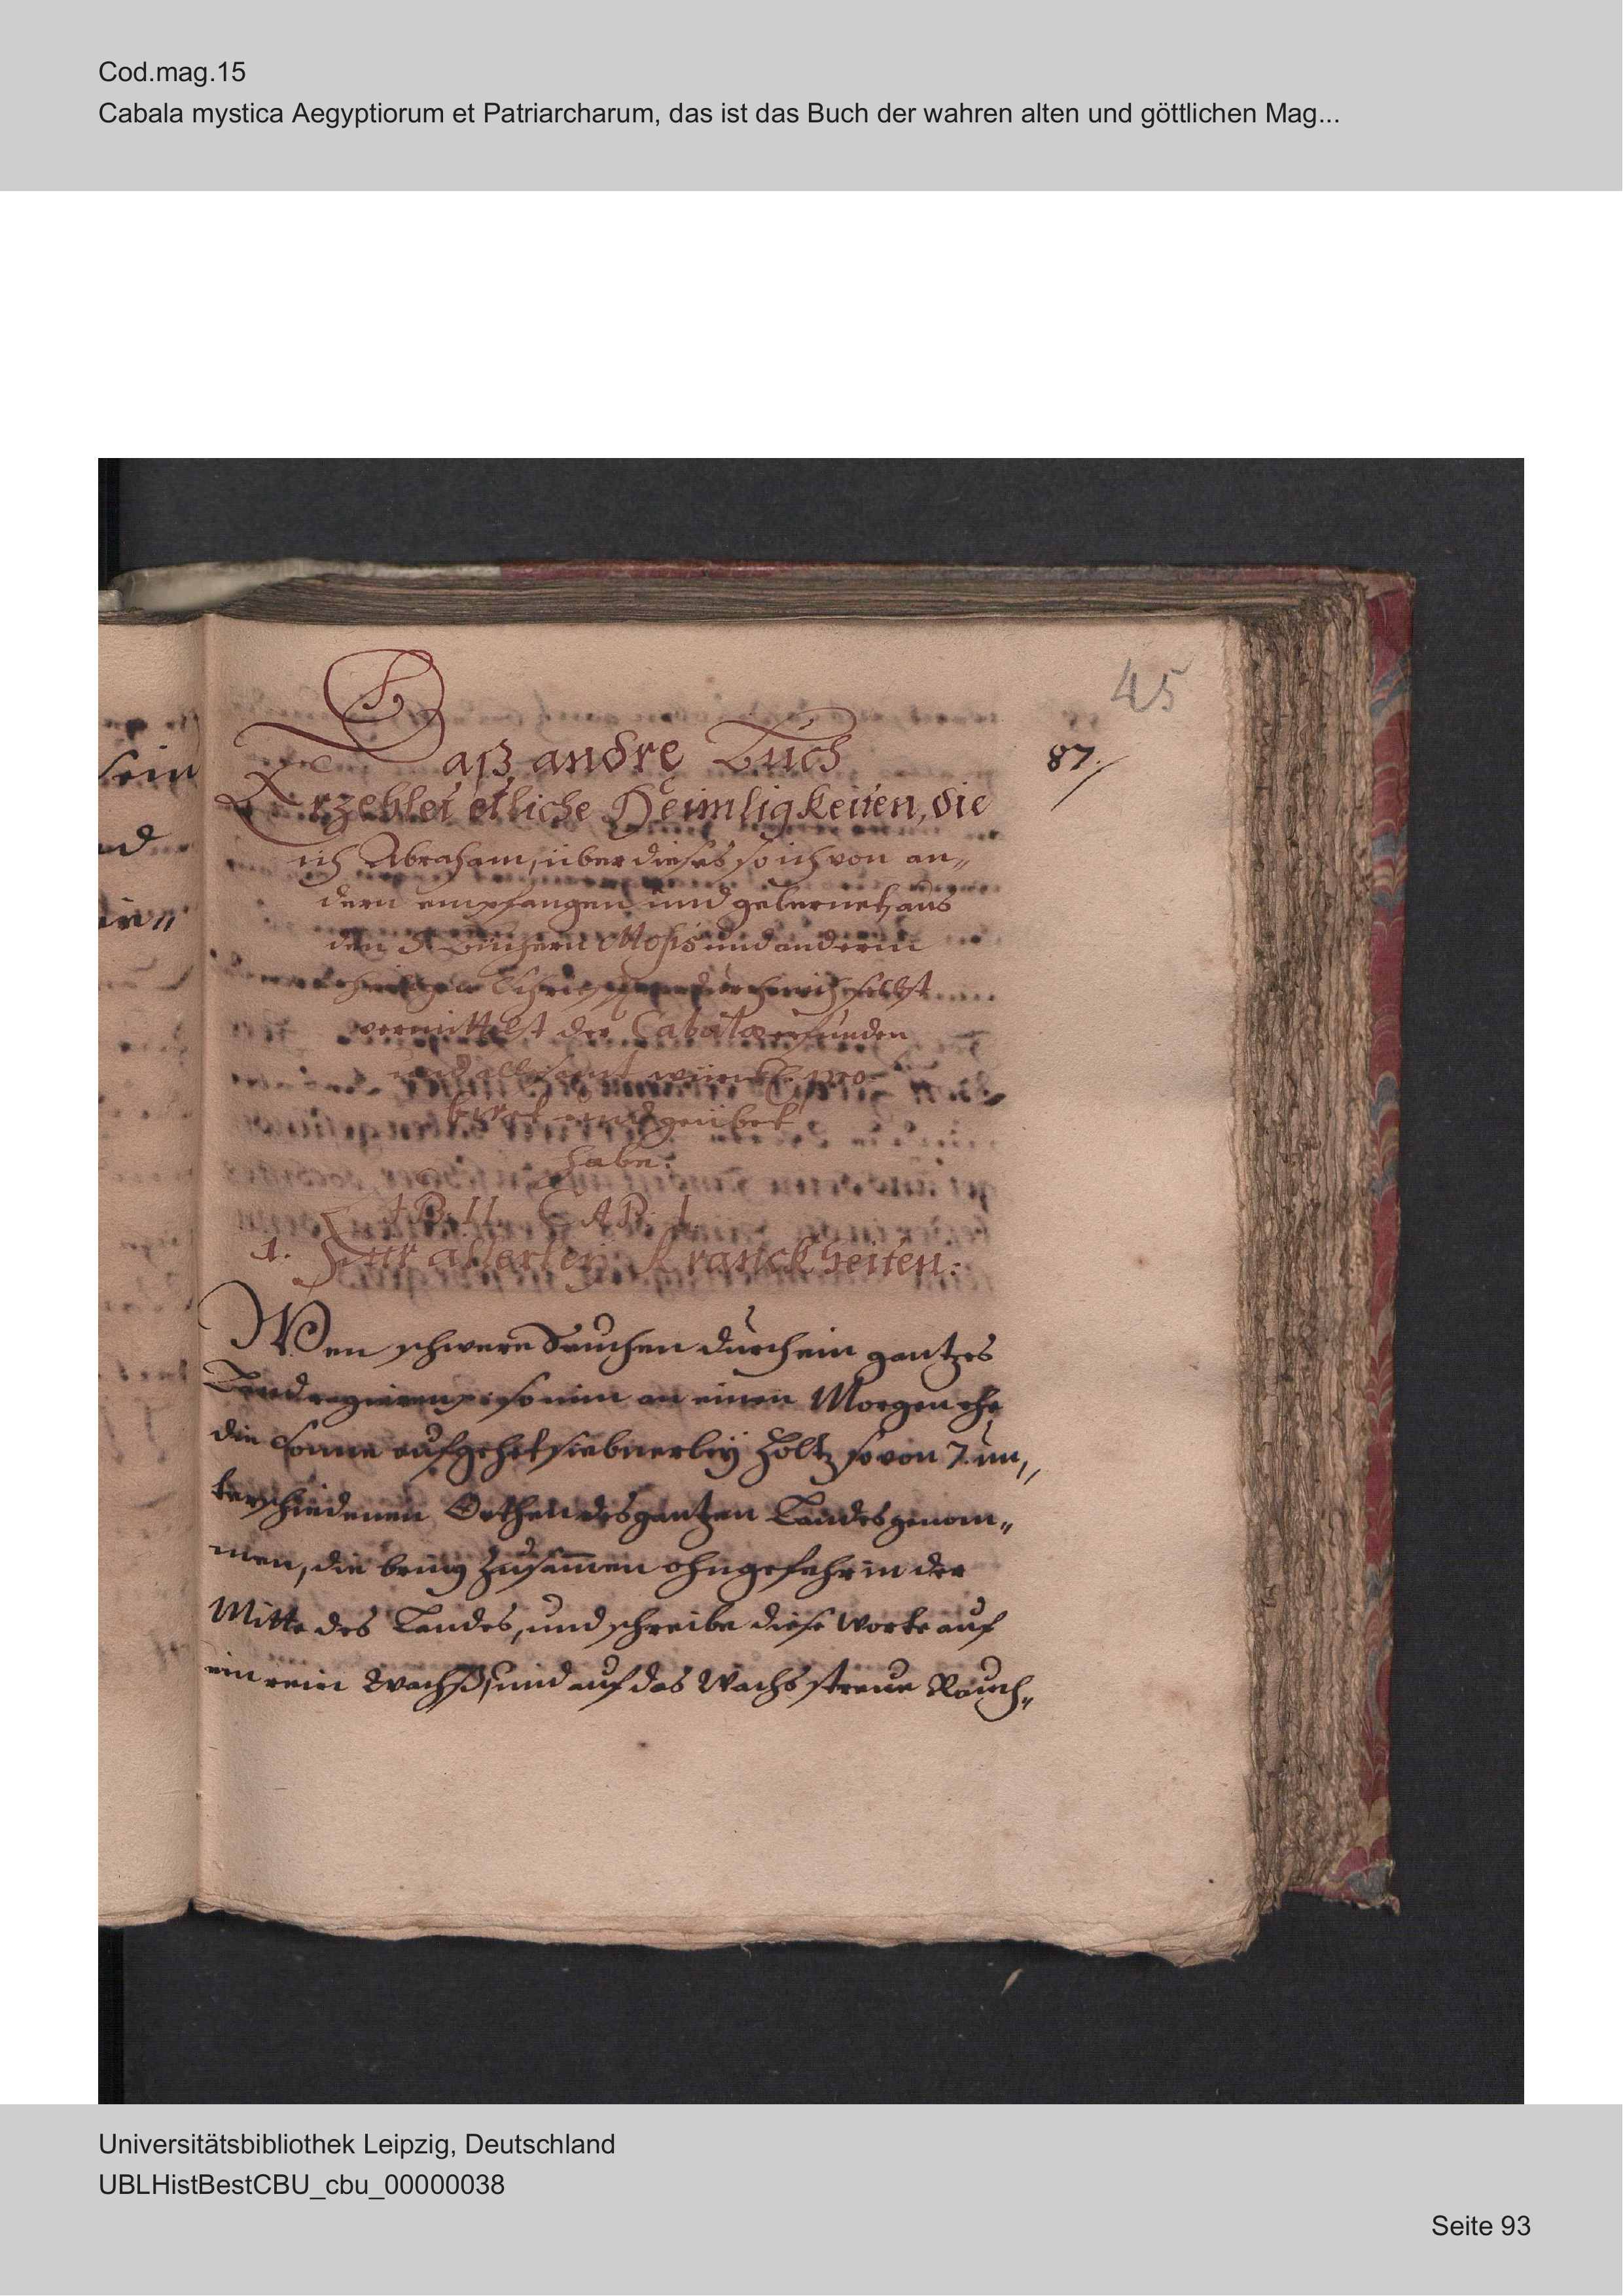 Cod.mag.15
Cabala mystica Aegyptiorum et Patriarcharum, das ist das Buch der wahren alten und göttlichen Mag...
45
87.
Daß andre Buch
Erzehlet etliche Heimligkeiten, die
ich Abraham, über dieses so ich von an„
dern empfangen und gelernet, aus
den 5 Büchern Mosis und andern
heiligen Schrifften durch mich selbst
vermittelst der Cabala erfunden
und allesamt würckl. pro„
biret und geübet
habe.
LIB. II. CAP. I.
1. Zur allerley Kranckheiten.
Wen schwere Seuchen durch ein gantzes
Land regieren, so nim an einen Morgen ehe
die Sonne aufgehet siebnerley Holtz so von 7. un„
terschiedenen Orthen des gantzen Landes genom„
men, die bring zusam̄en ohngefehr in der
Mitte des Landes, und schreibe diese Worte auf
ein rein Wachß, und auf das Wachs streue Rauch„
Universitätsbibliothek Leipzig, Deutschland
UBLHistBestCBU_cbu_00000038
Seite 93